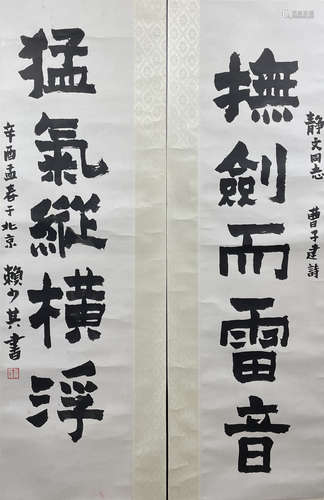 静文同志
曹子建詩
撫劍而雷音
猛氣縱橫浮
辛酉孟春于北京
賴少其書